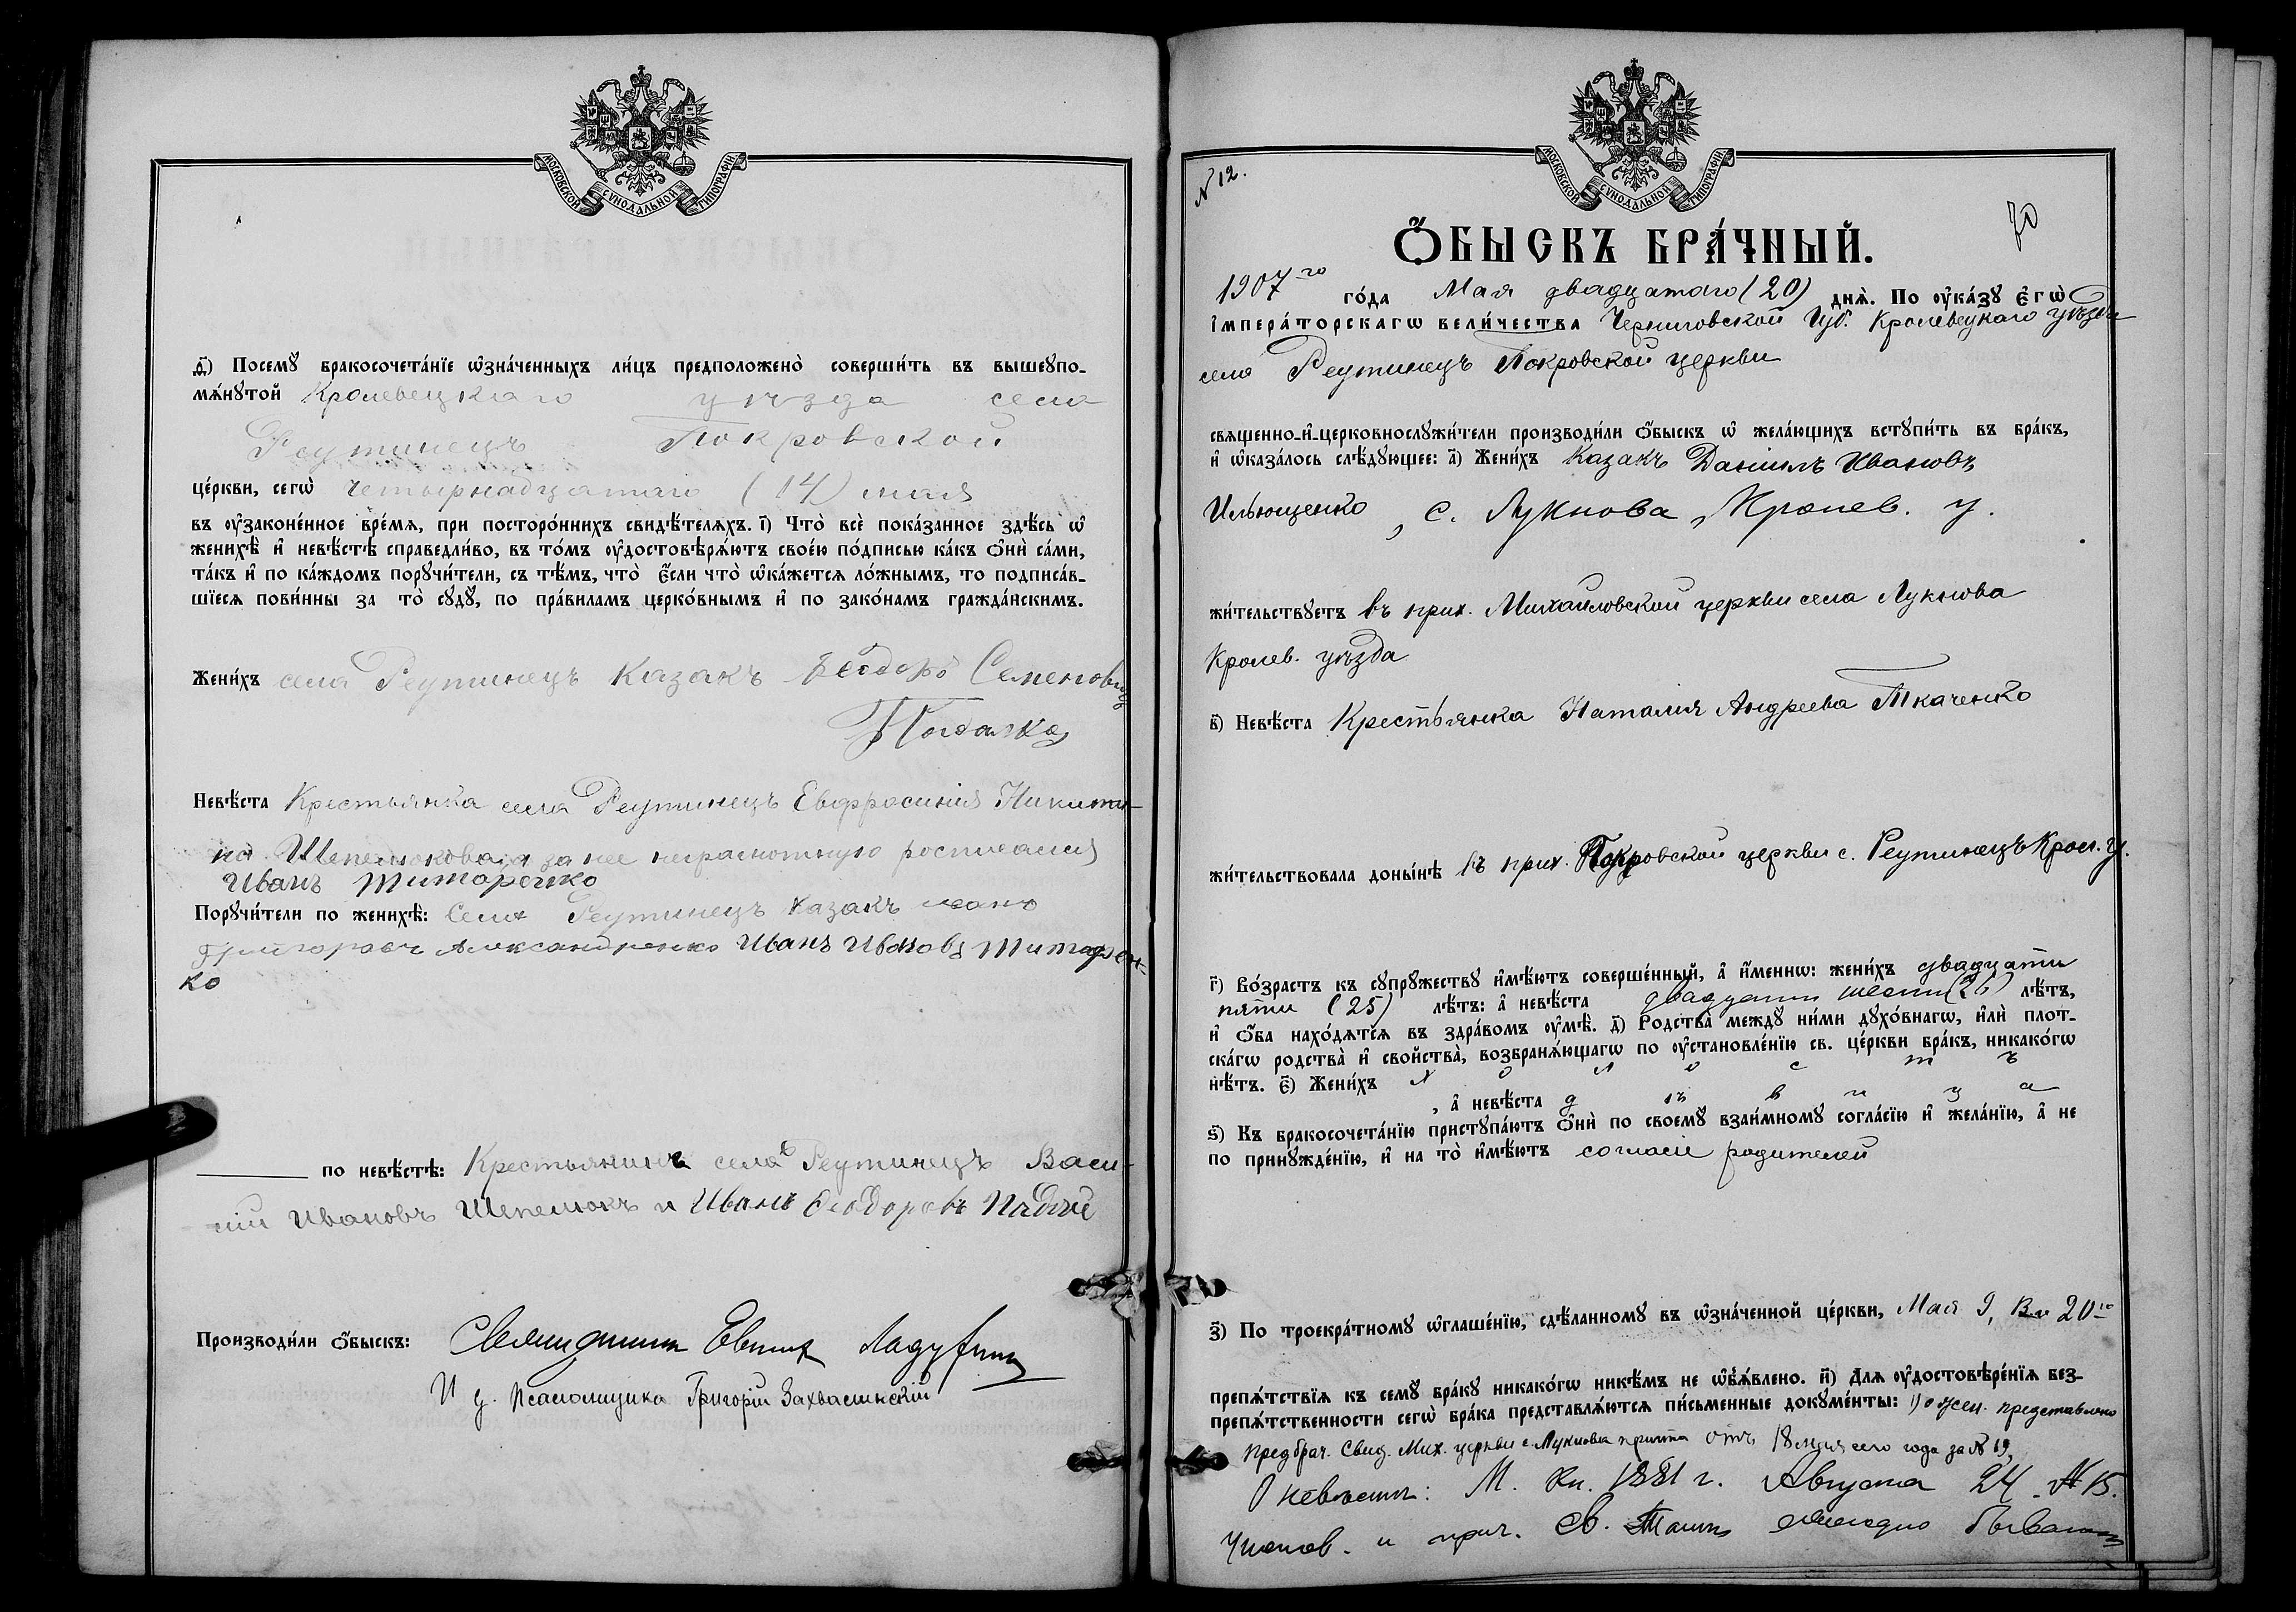 МОСКОВСКОЙ СѴНОДАЛЬНОЙ ТИПОГРАФІИ.
д҃і) Посемꙋ бракосочета́нїе ѡзна́ченныхъ ли́цъ предположено̀ соверши́ть въ вышеꙋпо-
мѧ́нꙋтой Кролевецкаго уѣзда села
Реутинецъ Покровской
це́ркви, сегѡ̀ четырнадцатаго (14) мая
въ ᲂу҆законе́нное вре́мѧ, при посторо́ннихъ свидѣ́телѧхъ. і҃) Что̀ всѐ пока́занное здѣ́сь ѡ҆
женихѣ̀ и҆ невѣ́стѣ справедли́во, въ то́мъ ᲂу҆достовѣрѧ́ютъ свое́ю по́дписью ка́къ ѻ҆нѝ са́ми,
та́къ и҆ по ка́ждомъ порꙋчи́тели, съ тѣ́мъ, что̀ є҆́сли что̀ ѡ҆ка́жетсѧ ло́жнымъ, то подписа́в-
шїесѧ пови́нны за то̀ сꙋдꙋ̀, по пра́виламъ церко́внымъ и҆ по зако́намъ гражда́нскимъ.
Жени́хъ села Реутинецъ казакъ Ѳеодоръ Семеновъ
Невѣ́ста Крестьянка села Реутинецъ Евфросинія Никити-
на Шепелюкова, а за нее неграмотную росписался
Иванъ Титаренко
Порꙋчи́тели по женихѣ̀: Села Реутинецъ казакъ Иванъ
Григоровъ Александренко Иванъ Ивановъ Титарен-
ко
по невѣ́стѣ: Крестьянинъ села Реутинецъ Васи-
лій Ивановъ Шепелюкъ и Иванъ Ѳеодоровъ
Производи́ли ѻ҆́быскъ: Священникъ Евгиній
И д. Псаломщика Григорій Захвалинскій
МОСКОВСКОЙ СѴНОДАЛЬНОЙ ТИПОГРАФІИ.
N 12.
70
Ѻ҆́БЫСКЪ БРА́ЧНЫЙ.
1907го го́да Мая двадцатаго (20) днѧ̀. По ᲂу҆ка́зꙋ є҆гѡ̀
і҆мпера́торскагѡ вели́чества Черниговской Губ. Кролевецкаго уѣзда
села Реутинецъ Покровской церкви
свѧщенно-и҆-церковнослꙋжи́тели производи́ли ѻ҆́быскъ ѡ҆ жела́ющихъ встꙋпи́ть въ бра́къ,
и҆ ѡ҆каза́лось слѣ́дꙋющее: а҃) Жени́хъ Казакъ Даніилъ Ивановъ
Ильющенко, с. Лукнова, Кролев. у.
жи́тельствꙋетъ въ прих. Михайловской церкви села Лукнова
Кролев. уѣзда
в҃) Невѣ́ста Крестьянка Наталия Андреева Ткаченко
жи́тельствовала доны́нѣ въ прих. Покровской церкви с. Реутинецъ Крол. у.
г҃) Во́зрастъ къ сꙋпрꙋ́жествꙋ и҆мѣ́ютъ соверше́нный, а҆ и҆́меннѡ: жени́хъ двадцати
пяти (25) лѣ́тъ: а҆ невѣ́ста двадцати шести (26) лѣ́тъ,
и҆ ѻ҆́ба нахо́дѧтсѧ въ здра́вомъ ᲂу҆мѣ̀. д҃) Родства̀ междꙋ̀ ни́ми дꙋхо́внагѡ, и҆лѝ плот-
ска́гѡ родства̀ и҆ свойства̀, возбранѧ́ющагѡ по ᲂу҆становле́нїю св. це́ркви бра́къ, никако́гѡ
нѣ́тъ. є҃) Жени́хъ холостъ
, а҆ невѣ́ста дѣвица
ѕ҃) Къ бракосочета́нїю пристꙋпа́ютъ ѻ҆нѝ по своемꙋ̀ взаи́мномꙋ согла́сїю и҆ жела́нїю, а҆ не
по принꙋжде́нїю, и҆ на то̀ и҆мѣ́ютъ согласіе родителей
з҃) По троекра́тномꙋ ѡ҆глаше́нїю, сдѣ́ланномꙋ въ ѡ҆зна́ченной це́ркви, Мая 9, 13 и 20го
препѧ́тствїѧ къ семꙋ̀ бра́кꙋ никако́гѡ никѣ́мъ не ѡ҆б̾ѧ́влено. и҃) Длѧ ᲂу҆достовѣре́нїѧ без-
препѧ́тственности сегѡ̀ бра́ка представлѧ́ютсѧ пи́сьменные докꙋме́нты: 1) о жен. представлено
предбрач. Свид. Мих. церкви с. Лукнова причта отъ 18 мая сего года за № 19,
О невѣстѣ: М. Кн. 1881 г. Августа 24 № 15.
Исповѣд. и прич. Св. Таинъ ежегодно